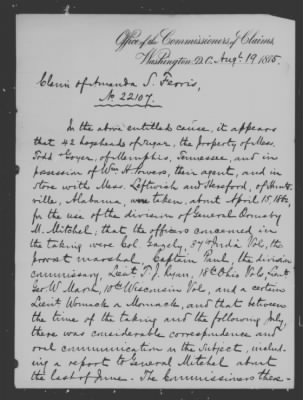 Office of the Commissioners of Claims,
Washington, D.C. Augt. 19 1875.
Claim of Amanda S. Ferris,
No 22107.
In the above entitled cause, it appears
that 42 hogsheads of sugar, the property of Mess.
Todd Goyer, of Memphis, Tennessee, and in
possession of Wm H. Powers, their agent, and in
store with Mess. Leftwich and Hereford, of Hunts-
ville, Alabama, were taken, about April 15, 1862,
for the use of the division of General Ormsby
M. Mitchel; that the officers concerned in
the taking were Col. 37th India Vols, the
provost marshal, Captain Paul, the division
commissary, Lieut T. J. 18th Ohio Vols, Lieut
Geo. W. Marsh, 10th Wisconsin Vol, and a certain
Lieut Womack or Momack, and that between
the time of the taking and the following July,
there was considerable correspondence and
oral communication on the subject, includ-
ing a report to General Mitchel about
the last of June. The Commissioners there-